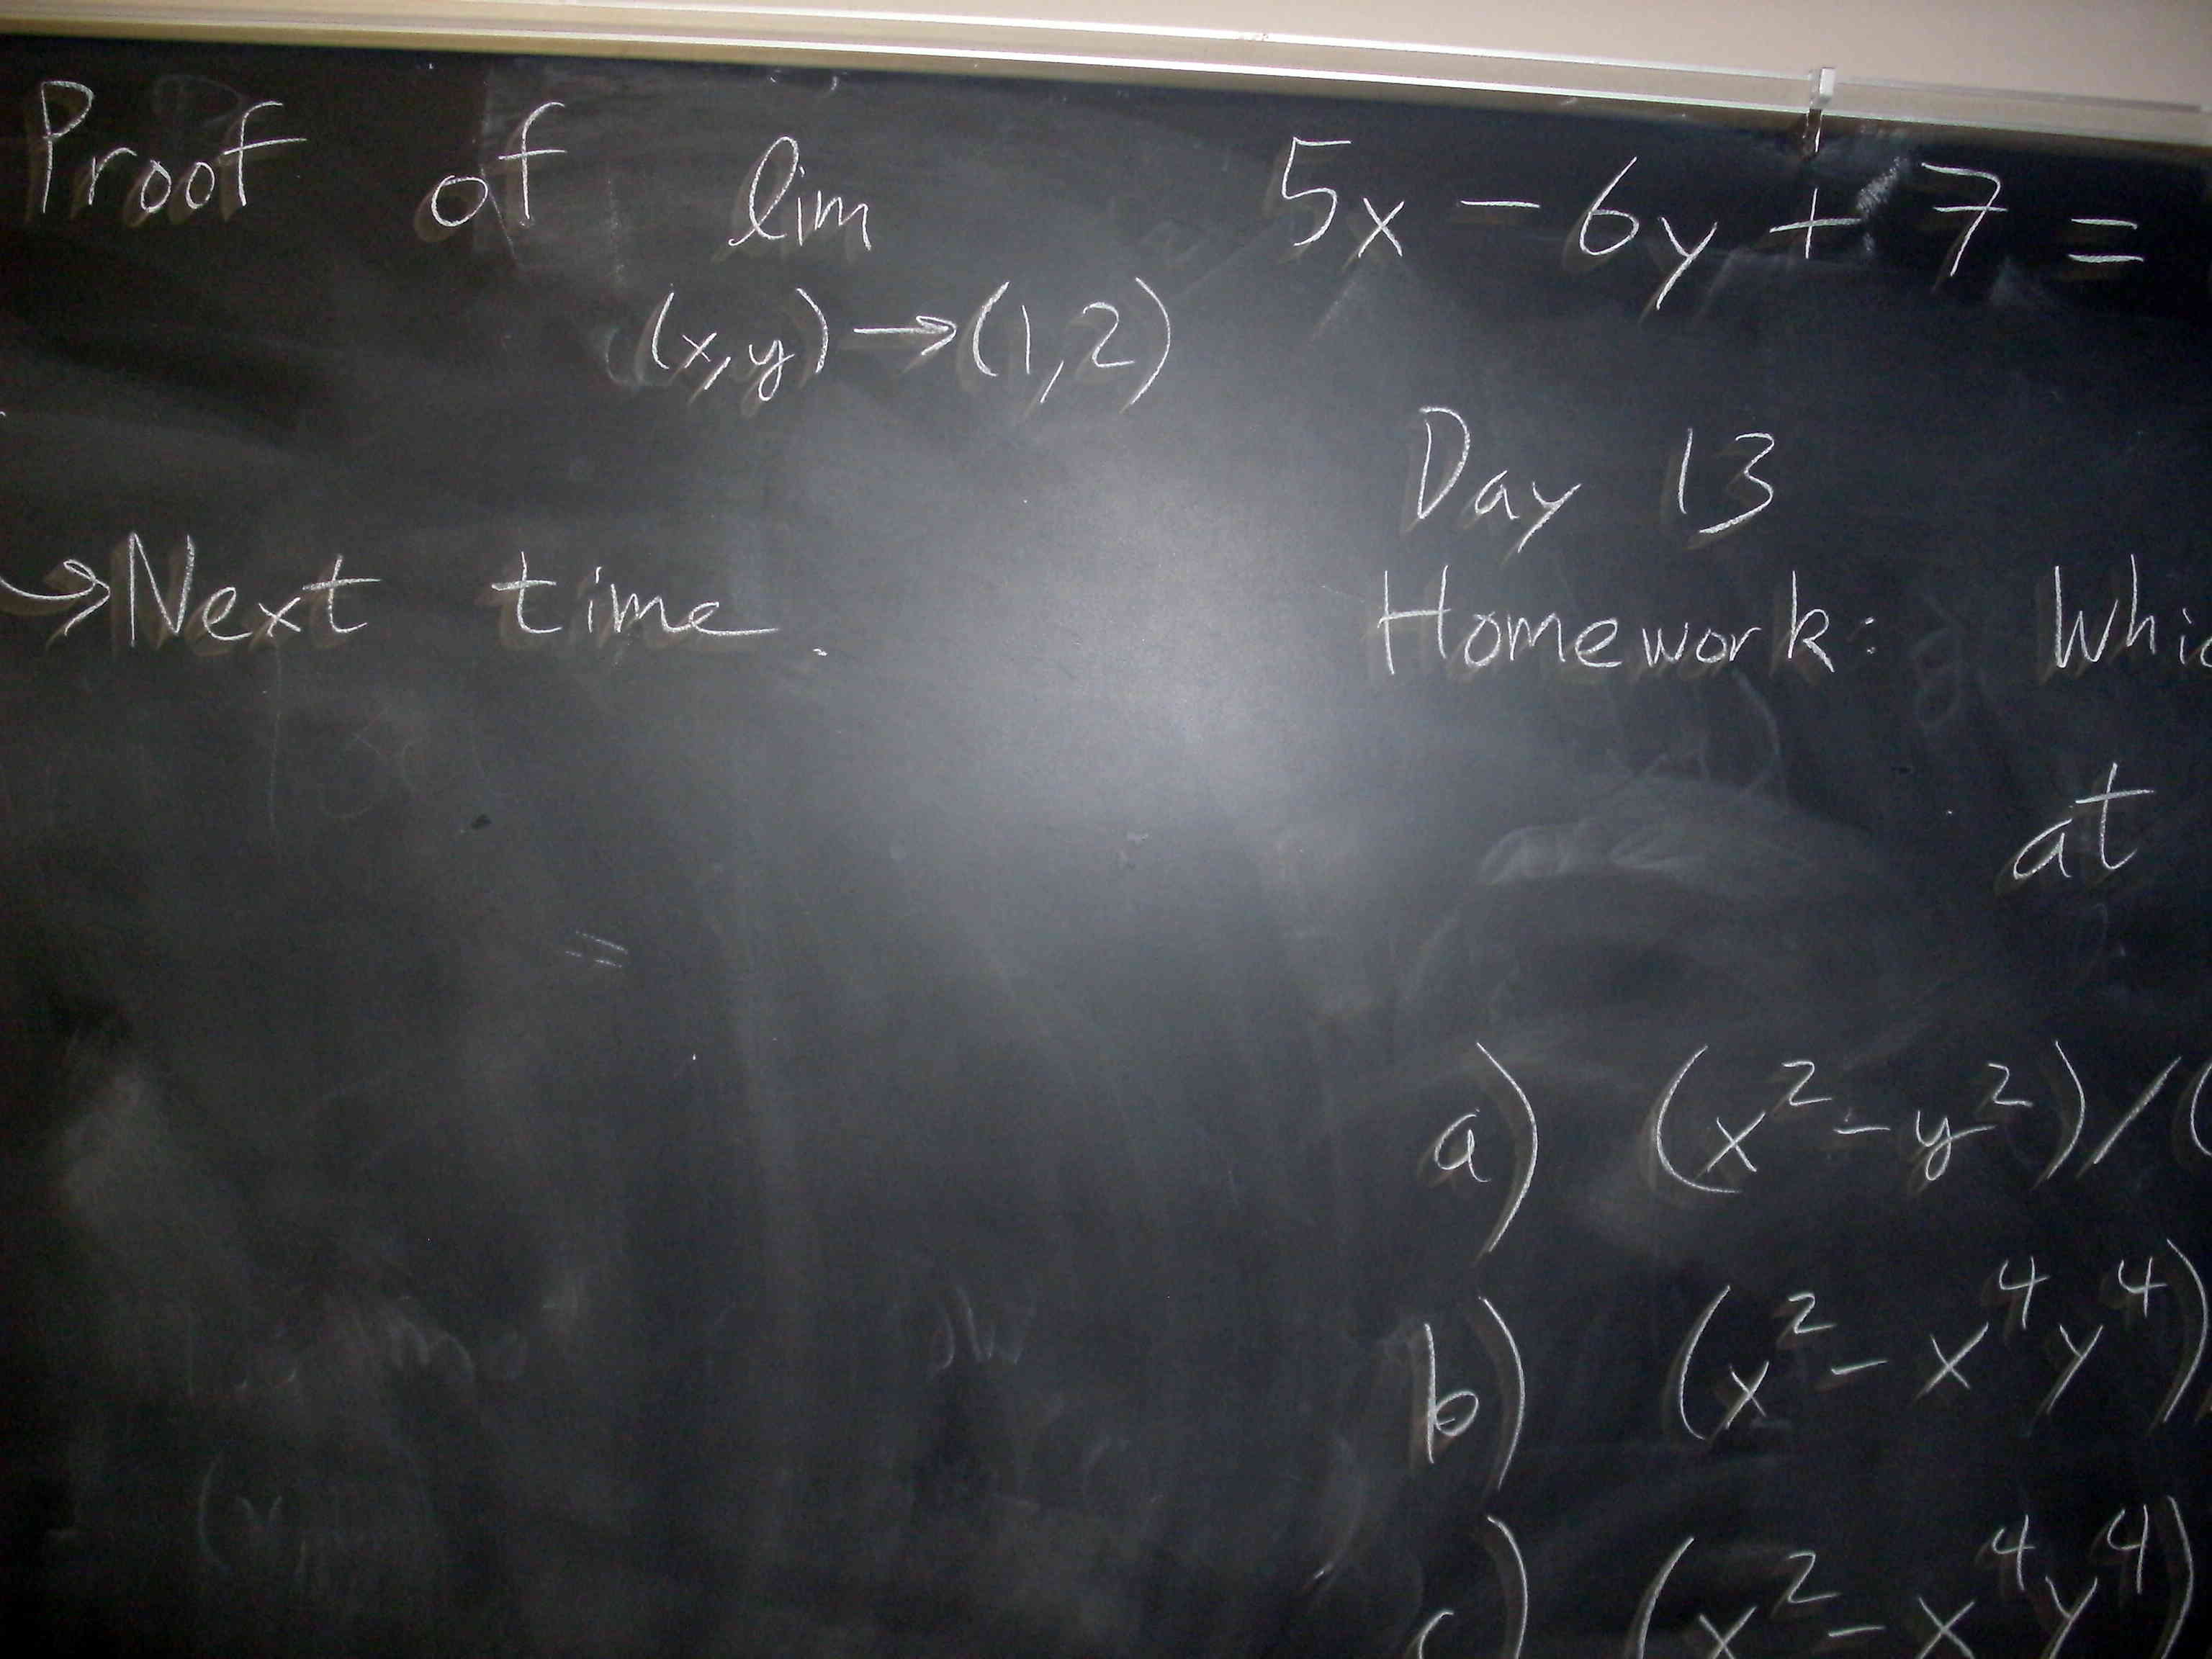 Proof of lim 5x - 6y + 7 =
(x,y) → (1,2)
→ Next time.
Day 13
Homework:
at
a) (x² - y²)/(
b) (x² - x⁴y⁴)
c) (x² - x⁴y⁴)